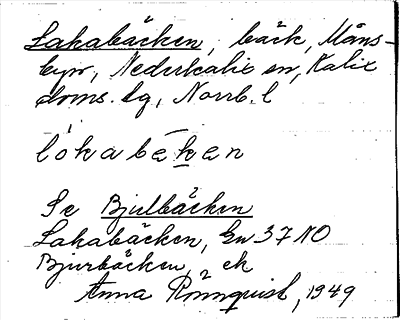 Lakabäcken, bäck, Måns-
byn, Nederkalix sn, Kalix
doms. lg, Norrb. l
lókabēken
Se Bjulbäcken
Lakabäcken, Gn 37 NO
Bjurbäcken, ek
Anna Rönnquist, 1949